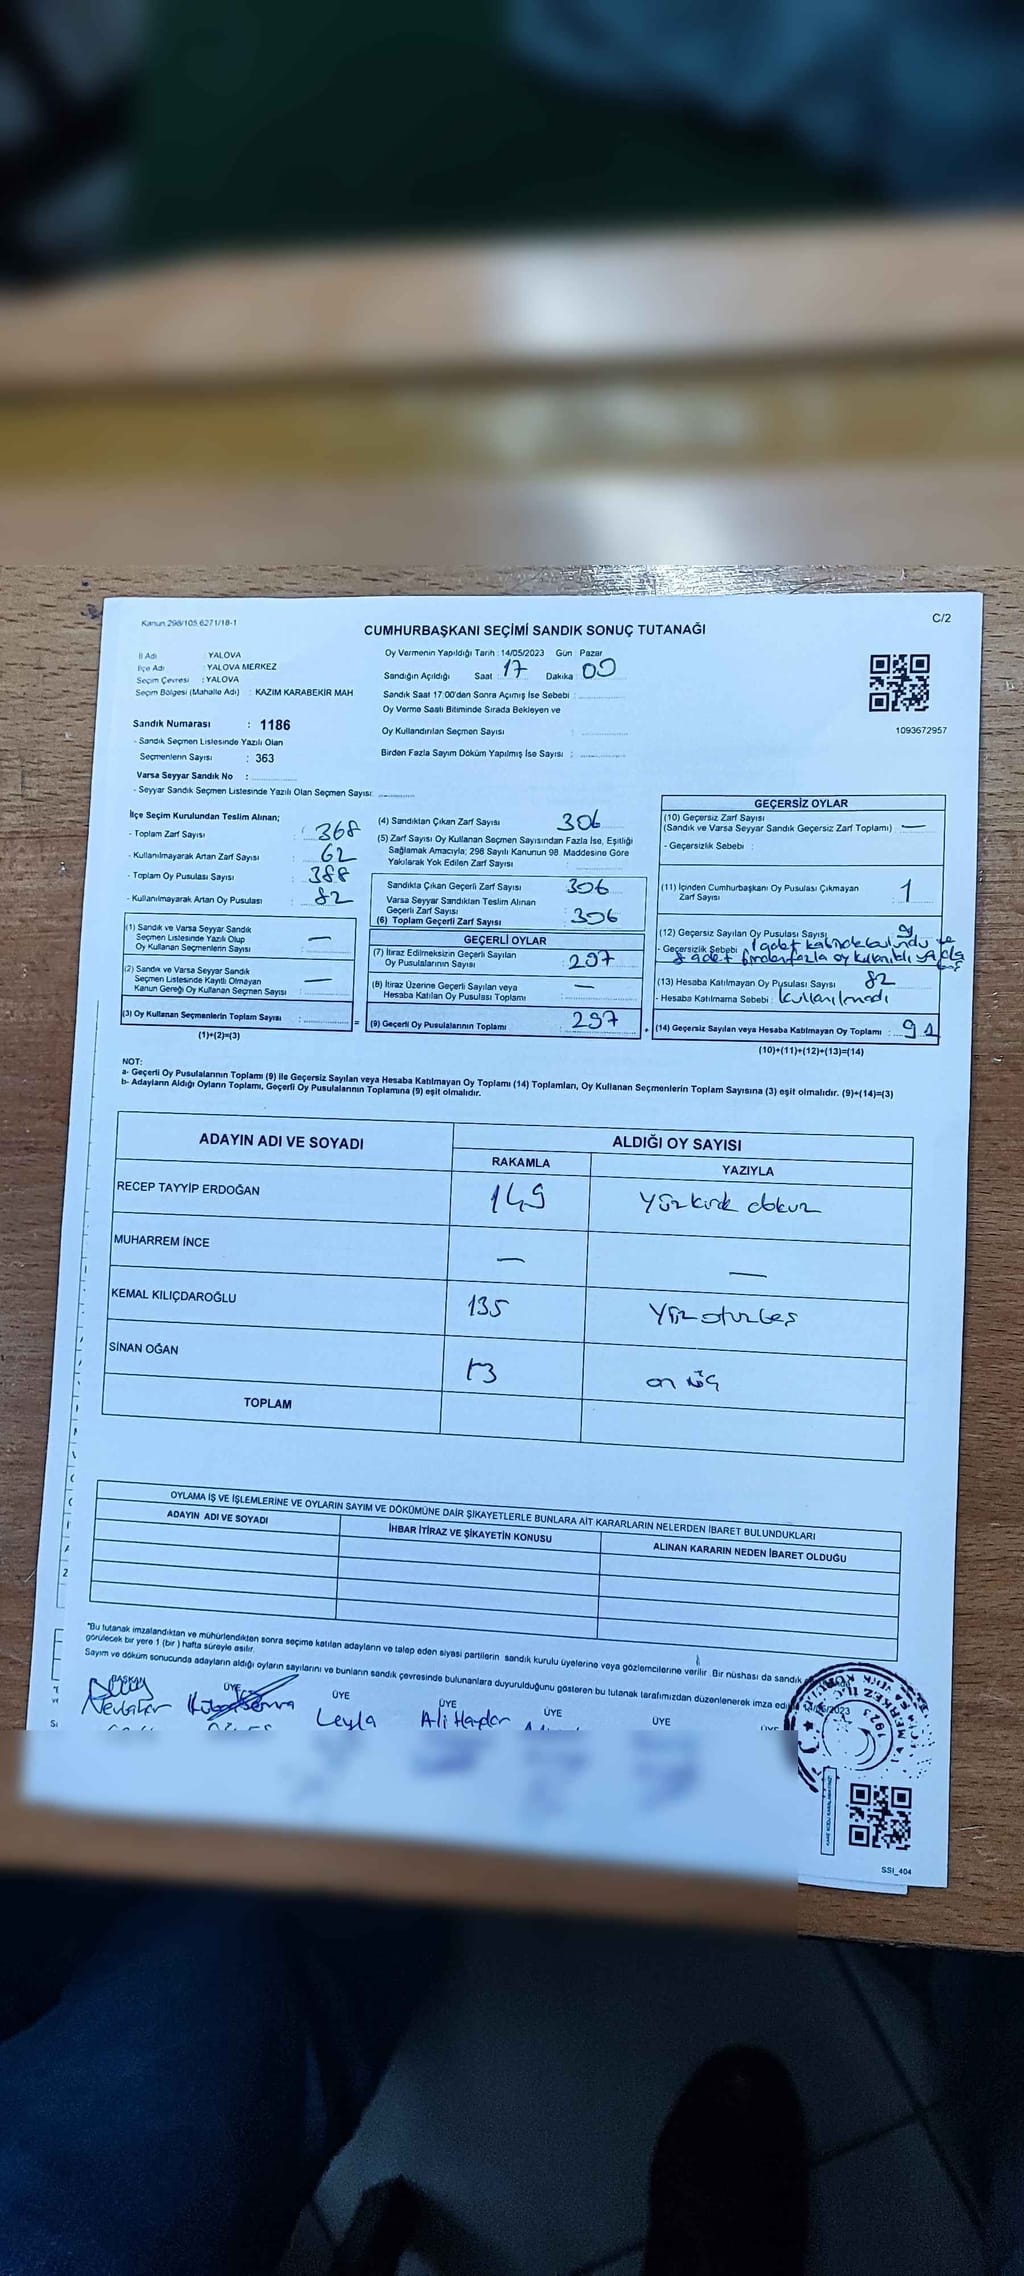 Kanun 298/105,6271/18-1
C/2
CUMHURBAŞKANI SEÇİMİ SANDIK SONUÇ TUTANAĞI
İl Adı : YALOVA
İlçe Adı : YALOVA MERKEZ
Seçim Çevresi : YALOVA
Seçim Bölgesi (Mahalle Adı) : KAZIM KARABEKİR MAH
Sandık Numarası : 1186
- Sandık Seçmen Listesinde Yazılı Olan
Seçmenlerin Sayısı : 363
Varsa Seyyar Sandık No :
- Seyyar Sandık Seçmen Listesinde Yazılı Olan Seçmen Sayısı:
Oy Vermenin Yapıldığı Tarih : 14/05/2023 Gün : Pazar
Sandığın Açıldığı Saat 17 Dakika 00
Sandık Saat 17:00'dan Sonra Açımış İse Sebebi :
Oy Verme Saati Bitiminde Sırada Bekleyen ve
Oy Kullandırılan Seçmen Sayısı :
Birden Fazla Sayım Döküm Yapılmış İse Sayısı :
1093672957
İlçe Seçim Kurulundan Teslim Alınan;
- Toplam Zarf Sayısı : 368
- Kullanılmayarak Artan Zarf Sayısı : 62
- Toplam Oy Pusulası Sayısı : 388
- Kullanılmayarak Artan Oy Pusulası : 82
(1) Sandık ve Varsa Seyyar Sandık
Seçmen Listesinde Yazılı Olup
Oy Kullanan Seçmenlerin Sayısı : —
(2) Sandık ve Varsa Seyyar Sandık
Seçmen Listesinde Kayıtlı Olmayan
Kanun Gereği Oy Kullanan Seçmen Sayısı : —
(3) Oy Kullanan Seçmenlerin Toplam Sayısı :
(1)+(2)=(3)
(4) Sandıktan Çıkan Zarf Sayısı 306
(5) Zarf Sayısı Oy Kullanan Seçmen Sayısından Fazla İse, Eşitliği
Sağlamak Amacıyla; 298 Sayılı Kanunun 98. Maddesine Göre
Yakılarak Yok Edilen Zarf Sayısı :
Sandıkta Çıkan Geçerli Zarf Sayısı : 306
Varsa Seyyar Sandıktan Teslim Alınan
Geçerli Zarf Sayısı
(6) Toplam Geçerli Zarf Sayısı : 306
GEÇERLİ OYLAR
(7) İtiraz Edilmeksizin Geçerli Sayılan
Oy Pusulalarının Sayısı : 297
(8) İtiraz Üzerine Geçerli Sayılan veya
Hesaba Katılan Oy Pusulası Toplamı : —
(9) Geçerli Oy Pusulalarının Toplamı : 297
GEÇERSİZ OYLAR
(10) Geçersiz Zarf Sayısı
(Sandık ve Varsa Seyyar Sandık Geçersiz Zarf Toplamı) —
- Geçersizlik Sebebi :
(11) İçinden Cumhurbaşkanı Oy Pusulası Çıkmayan
Zarf Sayısı 1
(12) Geçersiz Sayılan Oy Pusulası Sayısı 9
- Geçersizlik Sebebi 1 adet kabinde bulundu ve
8 adet birden fazla oy kullanıldı
(13) Hesaba Katılmayan Oy Pusulası Sayısı : 82
- Hesaba Katılmama Sebebi : kullanılmadı
(14) Geçersiz Sayılan veya Hesaba Katılmayan Oy Toplamı : 91
(10)+(11)+(12)+(13)=(14)
NOT:
a- Geçerli Oy Pusulalarının Toplamı (9) ile Geçersiz Sayılan veya Hesaba Katılmayan Oy Toplamı (14) Toplamları, Oy Kullanan Seçmenlerin Toplam Sayısına (3) eşit olmalıdır. (9)+(14)=(3)
b- Adayların Aldığı Oyların Toplamı, Geçerli Oy Pusulalarının Toplamına (9) eşit olmalıdır.
ADAYIN ADI VE SOYADI ALDIĞI OY SAYISI
RAKAMLA YAZIYLA
RECEP TAYYİP ERDOĞAN 149 Yüzkırk dokuz
MUHARREM İNCE — —
KEMAL KILIÇDAROĞLU 135 Yüz otuz beş
SİNAN OĞAN 13 on üç
TOPLAM
OYLAMA İŞ VE İŞLEMLERİNE VE OYLARIN SAYIM VE DÖKÜMÜNE DAİR ŞİKAYETLERLE BUNLARA AİT KARARLARIN NELERDEN İBARET BULUNDUKLARI
ADAYIN ADI VE SOYADI İHBAR İTİRAZ VE ŞİKAYETİN KONUSU ALINAN KARARIN NEDEN İBARET OLDUĞU
"Bu tutanak imzalandıktan ve mühürlendikten sonra seçime katılan adayların ve talep eden siyasi partilerin sandık kurulu üyelerine veya gözlemcilerine verilir. Bir nüshası da sandık
görülecek bir yere 1 (bir) hafta süreyle asılır.
Sayım ve döküm sonucunda adayların aldığı oyların sayılarını ve bunların sandık çevresinde bulunanlara duyurulduğunu gösteren bu tutanak tarafımızdan düzenlenerek imza
BAŞKAN ÜYE ÜYE ÜYE ÜYE ÜYE ÜYE
Leyla Ali Haydar
1923
SSI_404